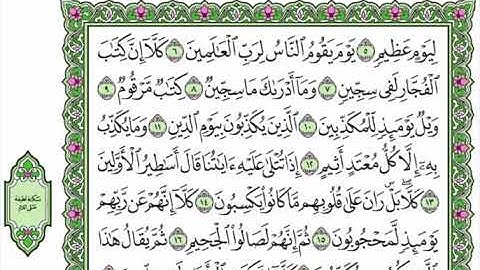 لِيَوْمٍ عَظِيمٍ ٥ يَوْمَ يَقُومُ ٱلنَّاسُ لِرَبِّ ٱلْعَٰلَمِينَ ٦ كَلَّآ إِنَّ كِتَٰبَ
ٱلْفُجَّارِ لَفِى سِجِّينٍ ٧ وَمَآ أَدْرَىٰكَ مَا سِجِّينٌ ٨ كِتَٰبٌ مَّرْقُومٌ ٩
وَيْلٌ يَوْمَئِذٍ لِّلْمُكَذِّبِينَ ١٠ ٱلَّذِينَ يُكَذِّبُونَ بِيَوْمِ ٱلدِّينِ ١١ وَمَا يُكَذِّبُ
بِهِۦٓ إِلَّا كُلُّ مُعْتَدٍ أَثِيمٍ ١٢ إِذَا تُتْلَىٰ عَلَيْهِ ءَايَٰتُنَا قَالَ أَسَٰطِيرُ ٱلْأَوَّلِينَ
١٣ كَلَّا ۖ بَلْ ۜ رَانَ عَلَىٰ قُلُوبِهِم مَّا كَانُوا۟ يَكْسِبُونَ ١٤ كَلَّآ إِنَّهُمْ عَن رَّبِّهِمْ
يَوْمَئِذٍ لَّمَحْجُوبُونَ ١٥ ثُمَّ إِنَّهُمْ لَصَالُوا۟ ٱلْجَحِيمِ ١٦ ثُمَّ يُقَالُ هَٰذَا